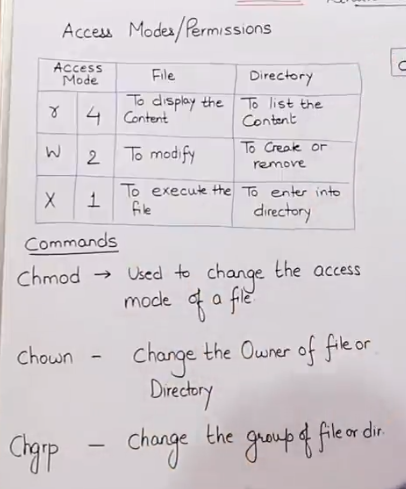 Access Modes/Permissions
Access Mode File Directory
r 4 To display the Content To list the Content
W 2 To modify To Create or remove
X 1 To execute the file To enter into directory
Commands
Chmod → Used to change the access
mode of a file.
Chown - Change the Owner of file or
Directory
Chgrp - Change the group of file or dir.